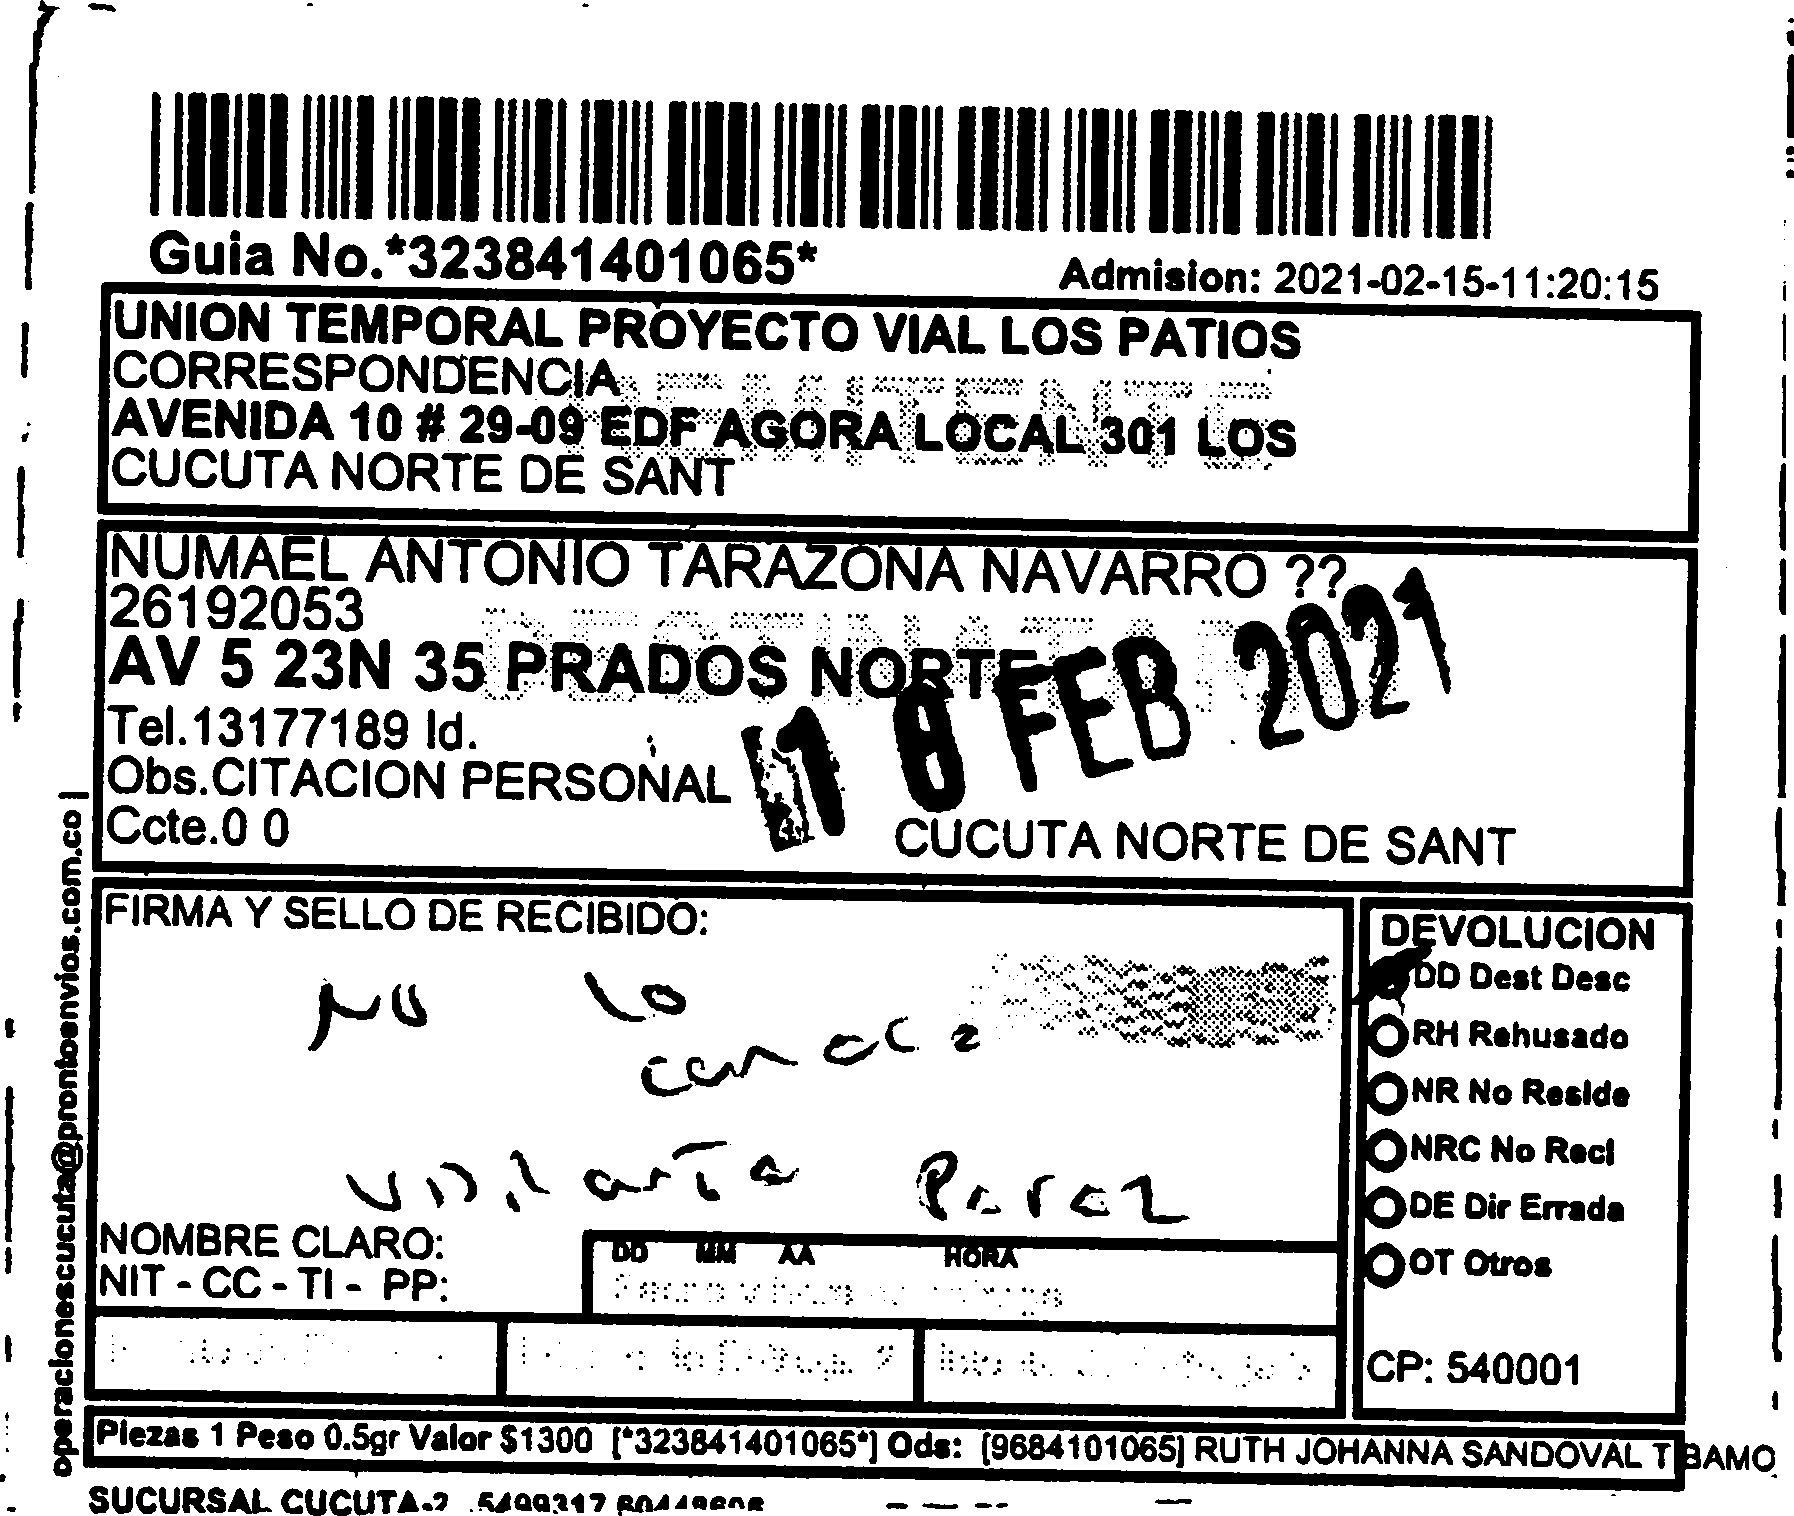 Guia No.*323841401065*
Admision: 2021-02-15-11:20:15
UNION TEMPORAL PROYECTO VIAL LOS PATIOS
CORRESPONDENCIA
REMITENTE
AVENIDA 10 # 29-09 EDF AGORA LOCAL 301 LOS
CUCUTA NORTE DE SANT
NUMAEL ANTONIO TARAZONA NAVARRO ??
26192053
AV 5 23N 35 PRADOS NORTE
FEB 2021
Tel.13177189 Id.
Obs.CITACION PERSONAL
Ccte.0 0
CUCUTA NORTE DE SANT
FIRMA Y SELLO DE RECIBIDO:
NO lo
conoce
Perez
NOMBRE CLARO:
NIT - CC - TI - PP:
DD MM AA HORA
DEVOLUCION
DD Dest Desc
RH Rehusado
NR No Reside
NRC No Recl
DE Dir Errada
OT Otros
CP: 540001
Piezas 1 Peso 0.5gr Valor $1300 [*323841401065*] Ods: [9684101065] RUTH JOHANNA SANDOVAL T BAMO
SUCURSAL CUCUTA-2
operacionescucuta@prontoenvios.com.co |